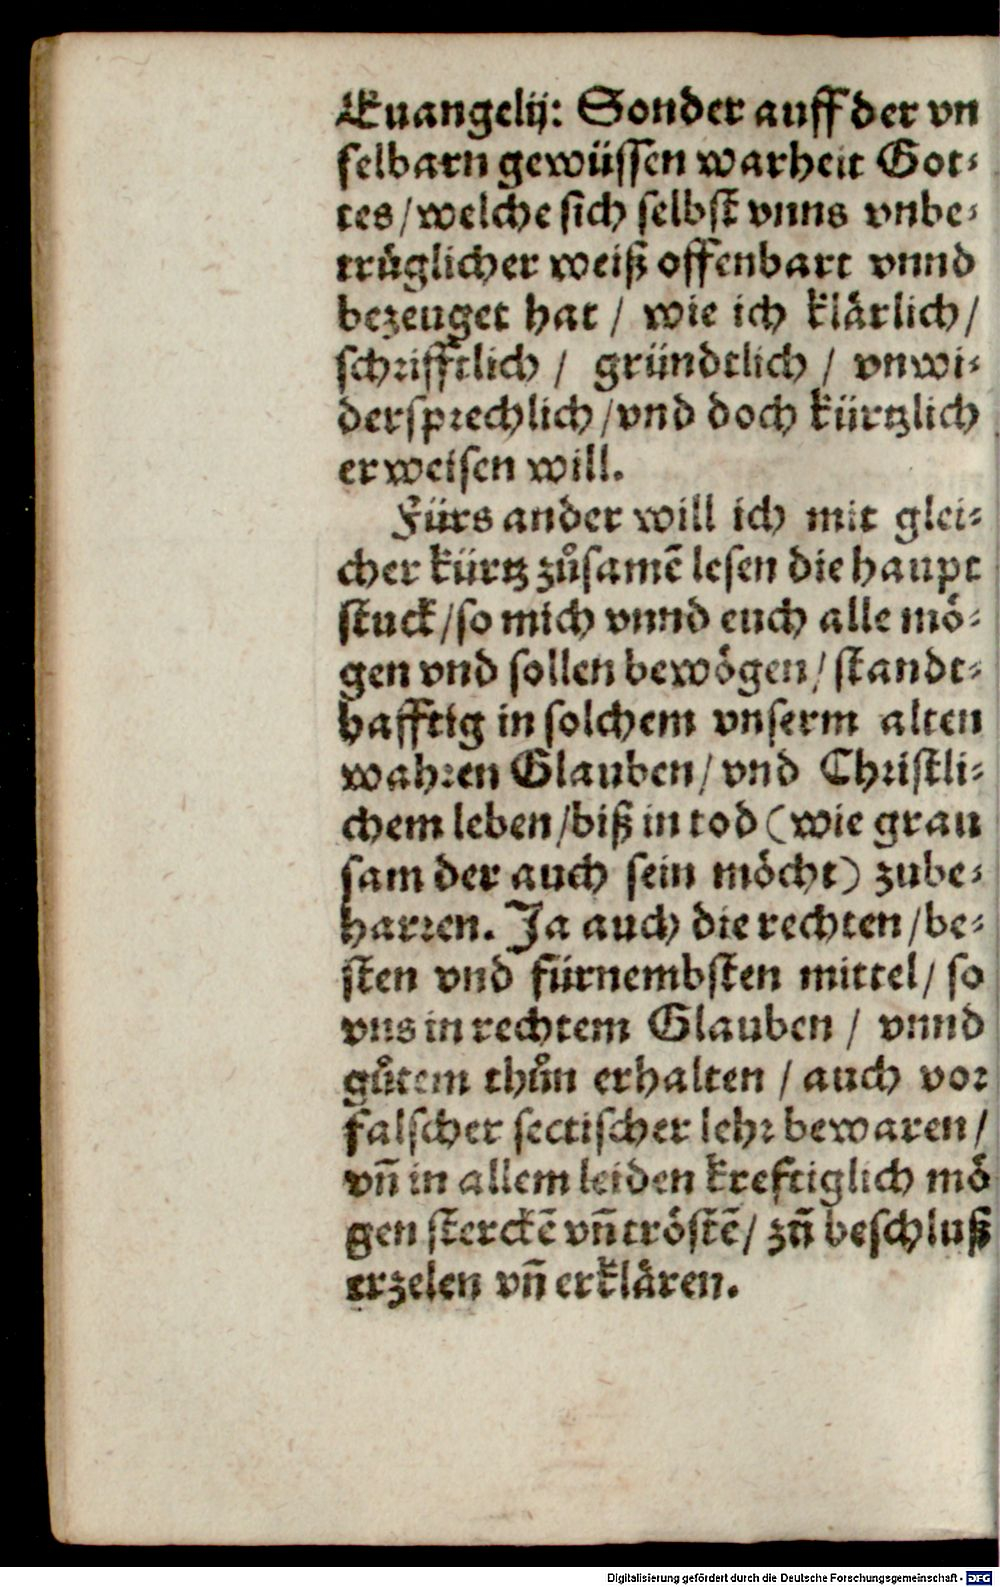 Euangelij: Sonder auff der vn
felbarn gewüssen warheit Got⸗
tes/welche sich selbst vnns vnbe⸗
trüglicher weiß offenbart vnnd
bezeuget hat / wie ich klärlich/
schrifftlich / gründtlich / vnwi⸗
dersprechlich/vnd doch kürtzlich
erweisen will.
Fürs ander will ich mit glei⸗
cher kürtz zůsamẽ lesen die haupt
stuck/so mich vnnd euch alle mö⸗
gen vnd sollen bewögen/standt⸗
hafftig in solchem vnserm alten
wahren Glauben/vnd Christli⸗
chem leben/biß in tod (wie grau
sam der auch sein möcht) zube⸗
harren. Ja auch die rechten/be⸗
sten vnd fürnembsten mittel/ so
vns in rechtem Glauben / vnnd
gůtem thůn erhalten / auch vor
falscher sectischer lehr bewaren/
vñ in allem leiden kreftiglich mö
gen sterckẽ vñ tröstẽ/ zũ beschluß
erzelen vñ erklären.
Digitalisierung gefördert durch die Deutsche Forschungsgemeinschaft - DFG